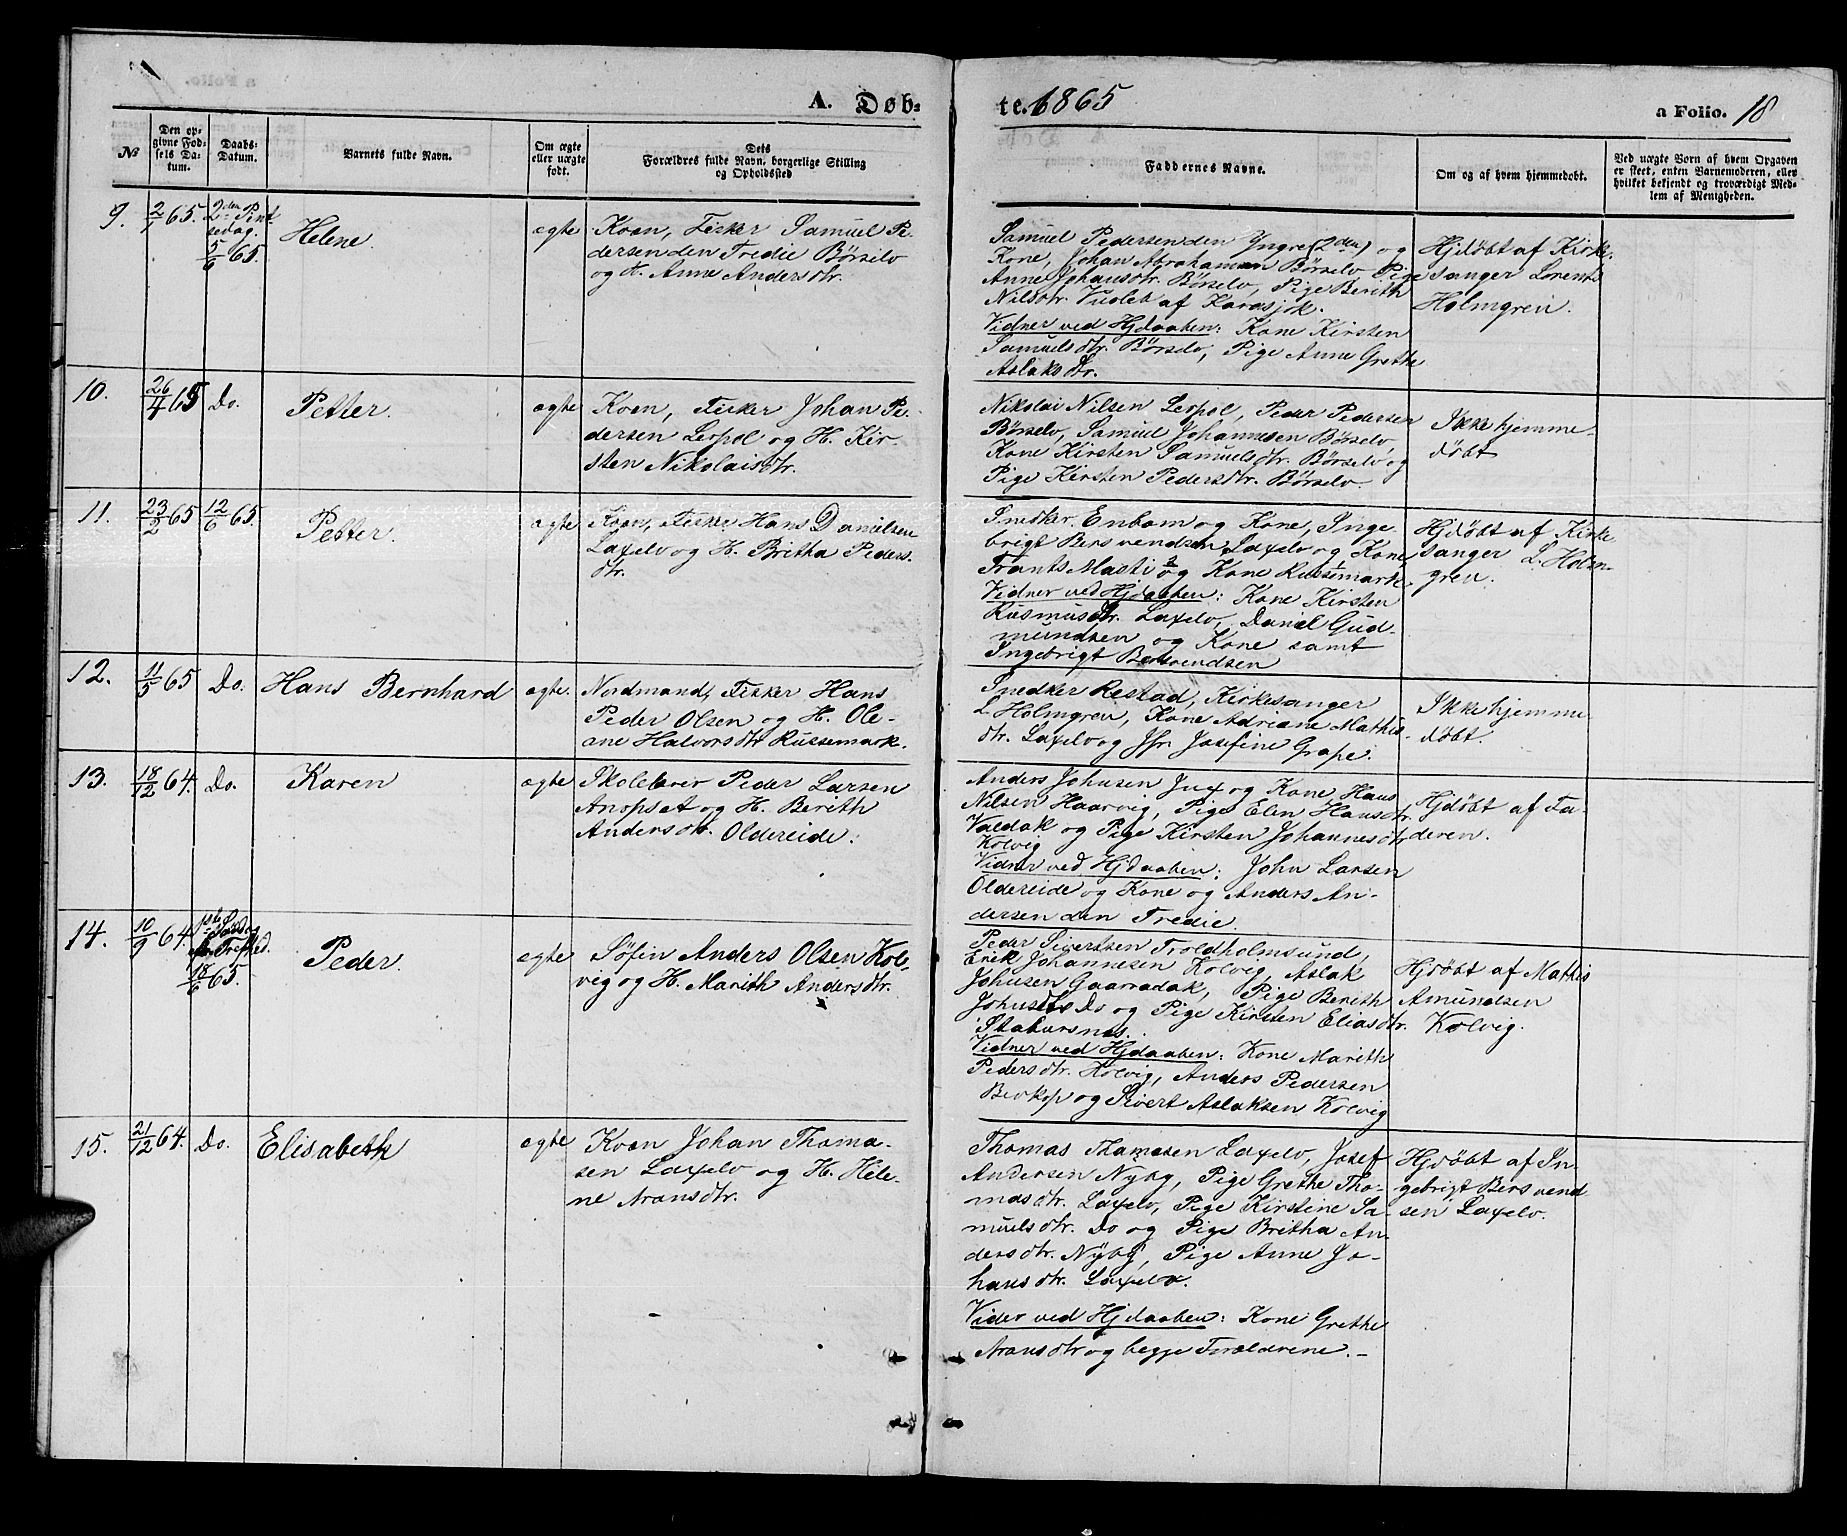 A. Døb-
te. 1865
a Folio. 18
№
Den op-
givne Fød-
sels Da-
tum.
Daabs-
Datum.
Varnets fulde Navn.
Om ægte
eller uægte
født.
Dets
Forældres fulde Navn, borgerlige Stilling
og Opholdssted
Faddernes Navne.
Om og af hvem hjemmedøbt.
Ved uægte Born af hvem Opgaven
er skeet, enten Barnemoderen, eller
hvilket bekjendt og troværdigt Med-
lem af Menigheden.
9.
2/1 65.
2den Pint
sedag.
5/6 65.
Helene.
ægte
Kvæn, Fisker Samuel Pe-
dersen den Tredie Børselv
og H. Anne Andersdtr.
Samuel Pedersen den Yngre (2den) og
Kone, Johan Abrahamsen Børselv, Pige
Anne Johansdtr. Børselv, Pige Berith
Nilsdtr. Vuolab af Karasjok.
Vidner ved Hjdaaben: Kone Kirsten
Samuelsdtr. Børselv, Pige Anne Grethe
Aslaksdtr.
Hjdøbt af Kirke-
sanger Lorents
Holmgren.
10.
26/4 65
Do.
Petter.
ægte
Kvæn, Fisker Johan Pe-
dersen Lerpol og H. Kir-
sten Nikolaisdtr.
Nikolai Nilsen Lerpol, Peder Pedersen
Børselv, Samuel Johannesen Børselv,
Kone Kirsten Samuelsdtr. Børselv og
Pige Kirsten Pedersdtr. Børselv.
Ikke hjemme-
døbt
11.
23/2 65
12/6 65.
Petter.
ægte
Kvæn, Fisker Hans Danielsen
Laxelv og H. Britha Peders-
dtr.
Snedker Enbom og Kone, Inge-
brigt Bersvendsen Laxelv og Kone,
Frants Mathi og Kone Russemark.
Vidner ved Hjdaaben: Kone Kirsten
Rasmusdtr. Laxelv, Daniel Gud-
mundsen og Kone samt
Ingebrigt Bersvendsen
Hjdøbt af Kirke
sanger L. Holm-
gren.
12.
11/5 65
Do.
Hans Bernhard
ægte.
Nordmand, Fisker Hans
Peder Olsen og H. Ole-
ane Halvorsdtr Russemark.
Snedker Restad, Kirkesanger
L. Holmgren, Kone Adriane Mathis-
dtr. Laxelv og Jfr. Josefine Grape.
Ikke hjemme-
døbt.
13.
18/12 64.
Do.
Karen
ægte
Skolelærer Peder Larsen
Anopset og H. Berith
Andersdtr. Oldereide.
Anders Johnsen Jux og Kone Hans
Nilsen Haarvig, Pige Elen Hansdtr.
Valdak og Pige Kirsten Johannesdtr
Kolvig
Vidner ved Hjdaaben: John Larsen
Oldereide og Kone og Anders An-
dersen den Tredie.
Hjdøbt af Fa-
deren.
14.
10/9 64
1ste Søndag
efter Trefhed.
18/6 65.
Peder.
ægte
Søfin Anders Olsen Kol-
vig og H. Marith Andersdtr.
Peder Sivertsen Troldholmsund,
Erik Johannesen Kolvig, Aslak
Johnsen Gaarradak, Pige Berith
Johnsdtr Do og Pige Kirsten Eliasdtr.
Stabursnes.
Vidner ved Hjdaaben: Kone Marith
Pedersdtr. Kolvig, Anders Pedersen
Bevkop og Sivert Aslaksen Kolvig
Hjdøbt af Mathis
Amundsen
Kolvig.
15.
21/12 64.
Do.
Elisabeth
ægte
Kvæn Johan Thoma-
sen Laxelv og H. Hele-
ne Aronsdtr.
Thomas Thomesen Laxelv, Josef
Andersen Nybg, Pige Grethe Tho-
masdtr. Laxelv, Pige Kirstine Sa-
muelsdtr. Do og Pige Britha An-
dersdtr. Nybg, Pige Anne Jo-
hansdtr. Laxelv.
Vider ved Hjdaaben: Kone Grethe
Aronsdtr og begge Forældrene.-
Hjdøbt af In-
gebrigt Bersvend
sen Laxelv.